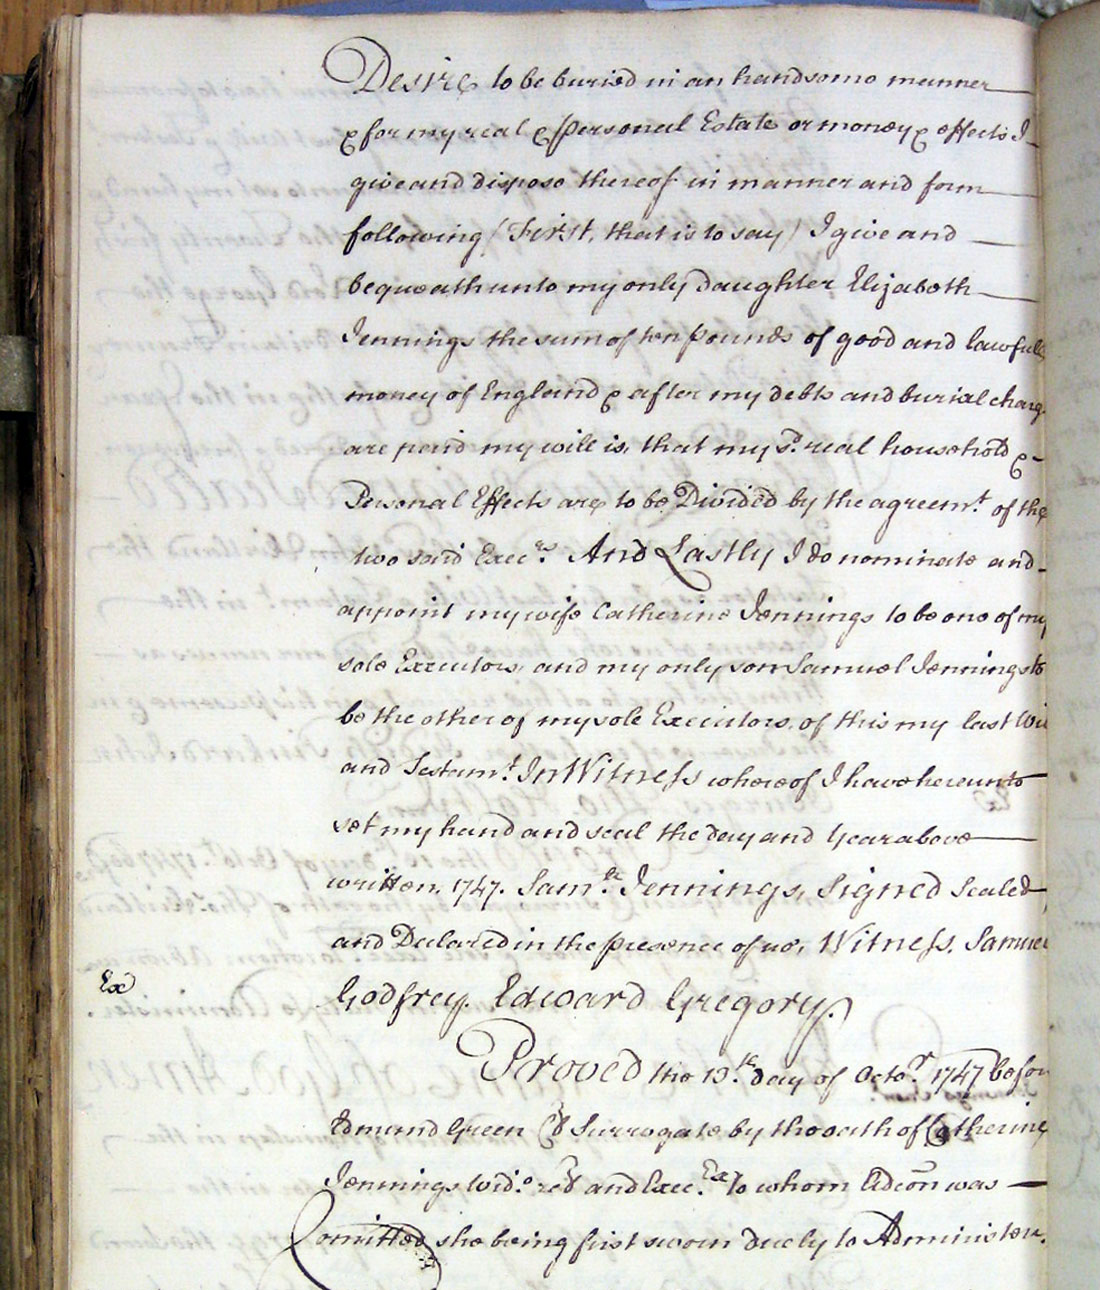 Desire to be buried in an handsome manner
& for my real & personal Estate or money & effects I
give and dispose thereof in manner and form
following (First, that is to say) I give and
bequeath unto my only daughter Elizabeth
Jennings the sum of ten pounds of good and lawfull
money of England & after my debts and burial charg
are paid my will is, that my sd. real household &
Personal Effects are to be Divided by the agreemt. of the
two said Execrs. And Lastly I do nominate and
appoint my wife Catherine Jennings to be one of my
sole Executors, and my only son Samuel Jennings to
be the other of my sole Executors, of this my last Wi
and Testamt. In Witness whereof I have hereunto
set my hand and seal the day and Year above
written. 1747. Saml. Jennings, Signed Sealed
and Declared in the presence of us, Witness, Samue
Ex Godfrey. Edward Gregory.
Proved the 13th. day of Octor. 1747 befor
Edmund Green Surrogate by the oath of Catherine
Jennings Wido. and Execx. to whom Adcon was
Comitted she being first sworn duely to Administer.